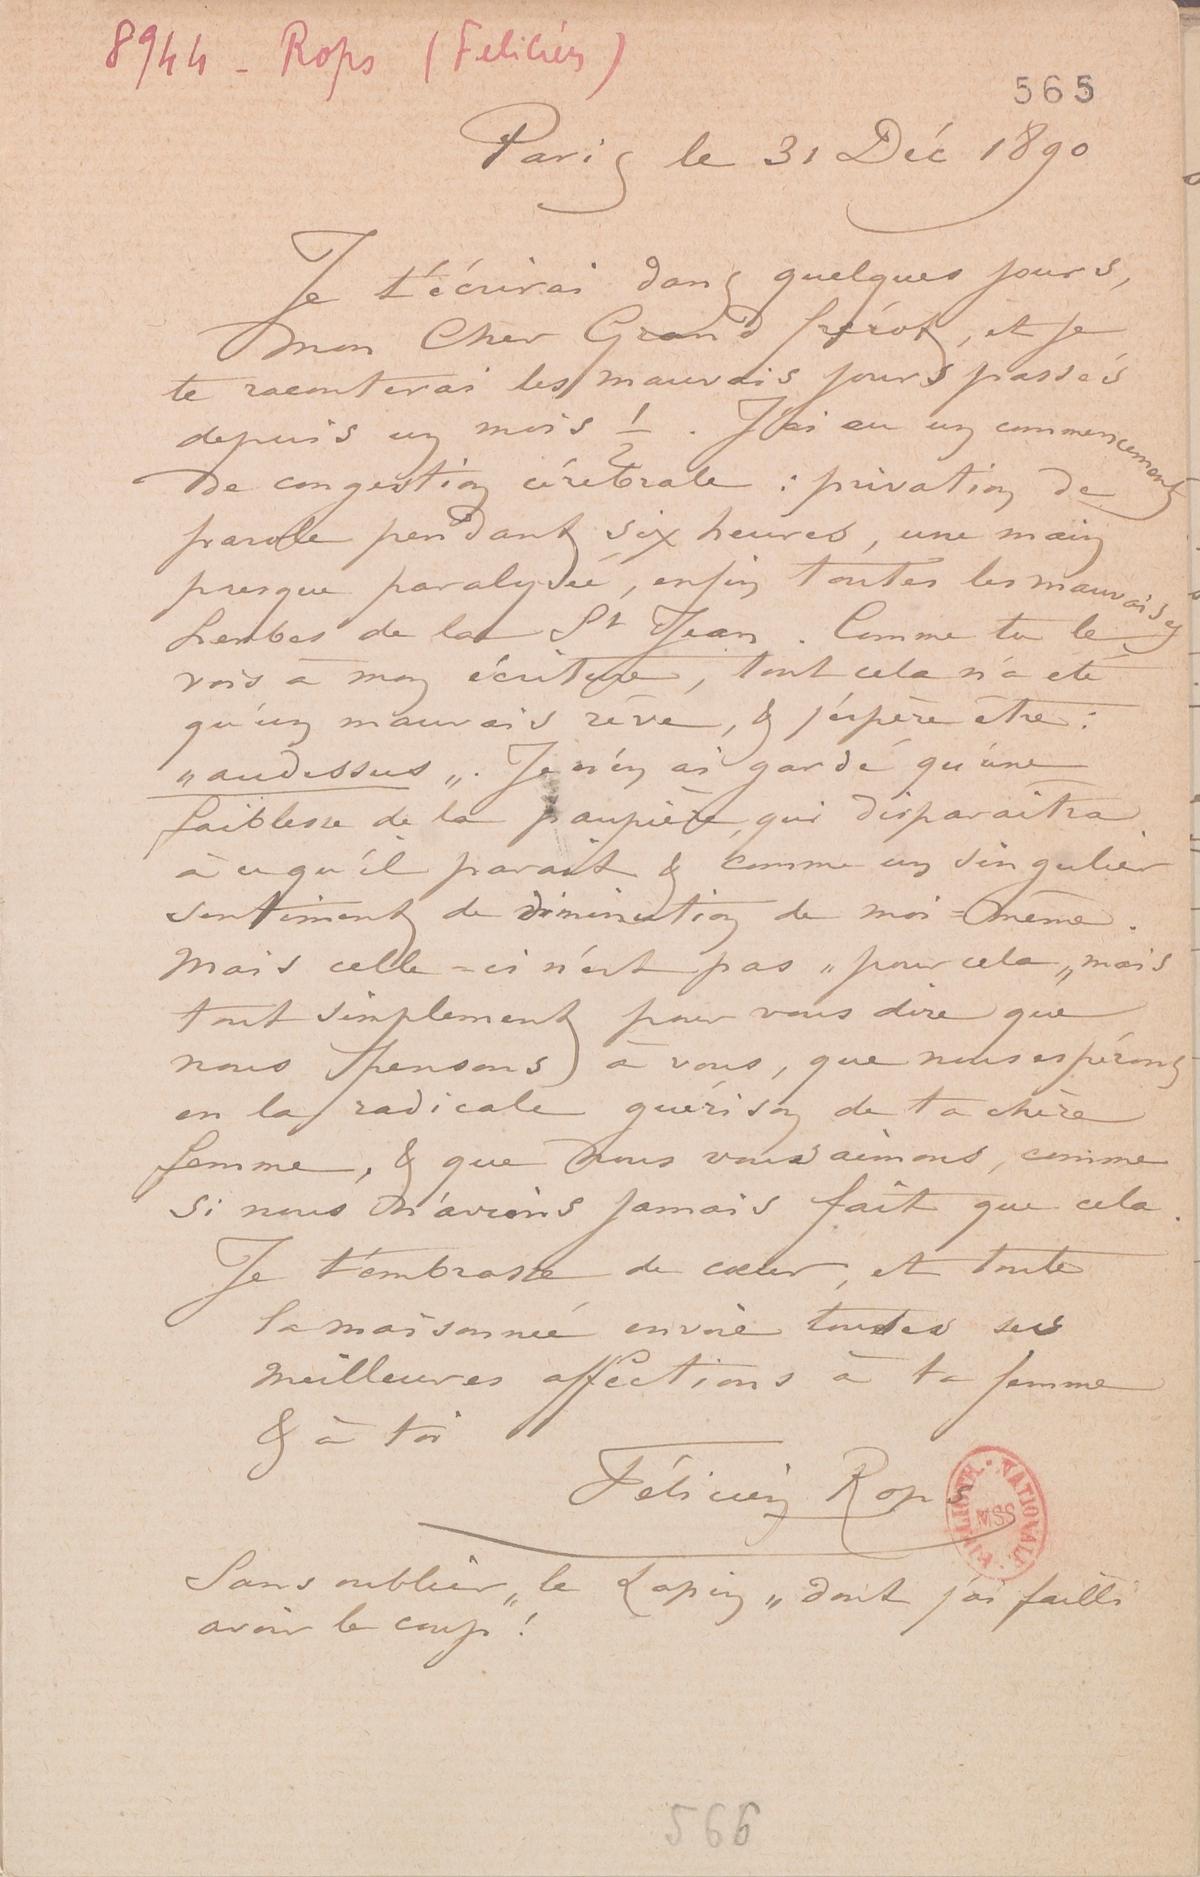 8944 - Rops (Félicien)
565
Paris le 31 Déc 1890
Je t'écrirai dans quelques jours,
mon Cher Grand frérot, et je
te raconterai les mauvais jours passés
depuis un mois 1/2. J'ai eu un commencement
de congestion cérébrale : privation de
parole pendant six heures, une main
presque paralysée, enfin toutes les mauvaises
herbes de la St Jean. Comme tu le
vois à mon écriture, tout cela n'a été
qu'un mauvais rêve, & j'espère être :
„audessus„. Je n'en ai gardé qu'une
faiblesse de la paupière, qui disparaitra
à ce qu'il parait & comme un singulier
sentiment de diminution de moi=même.
Mais celle=ci n'est pas „pour cela„ mais
tout simplement pour vous dire que
nous pensons à vous, que nous espérons
en la radicale guérison de ta chère
femme, & que nous vous aimons, comme
si nous n'avions jamais fait que cela.
Je t'embrasse de cœur, et toute
la maisonnée envoie toutes ses
meilleures affections à ta femme
& à toi
Félicien Rops
BIBLIOTH. NATIONALE MSS
Sans oublier „le Lapin„ dont j'ai failli
avoir le coup !
566